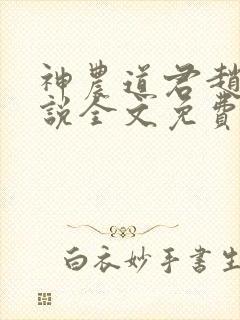 神農道君趙
說全文免費
白衣妙手書生